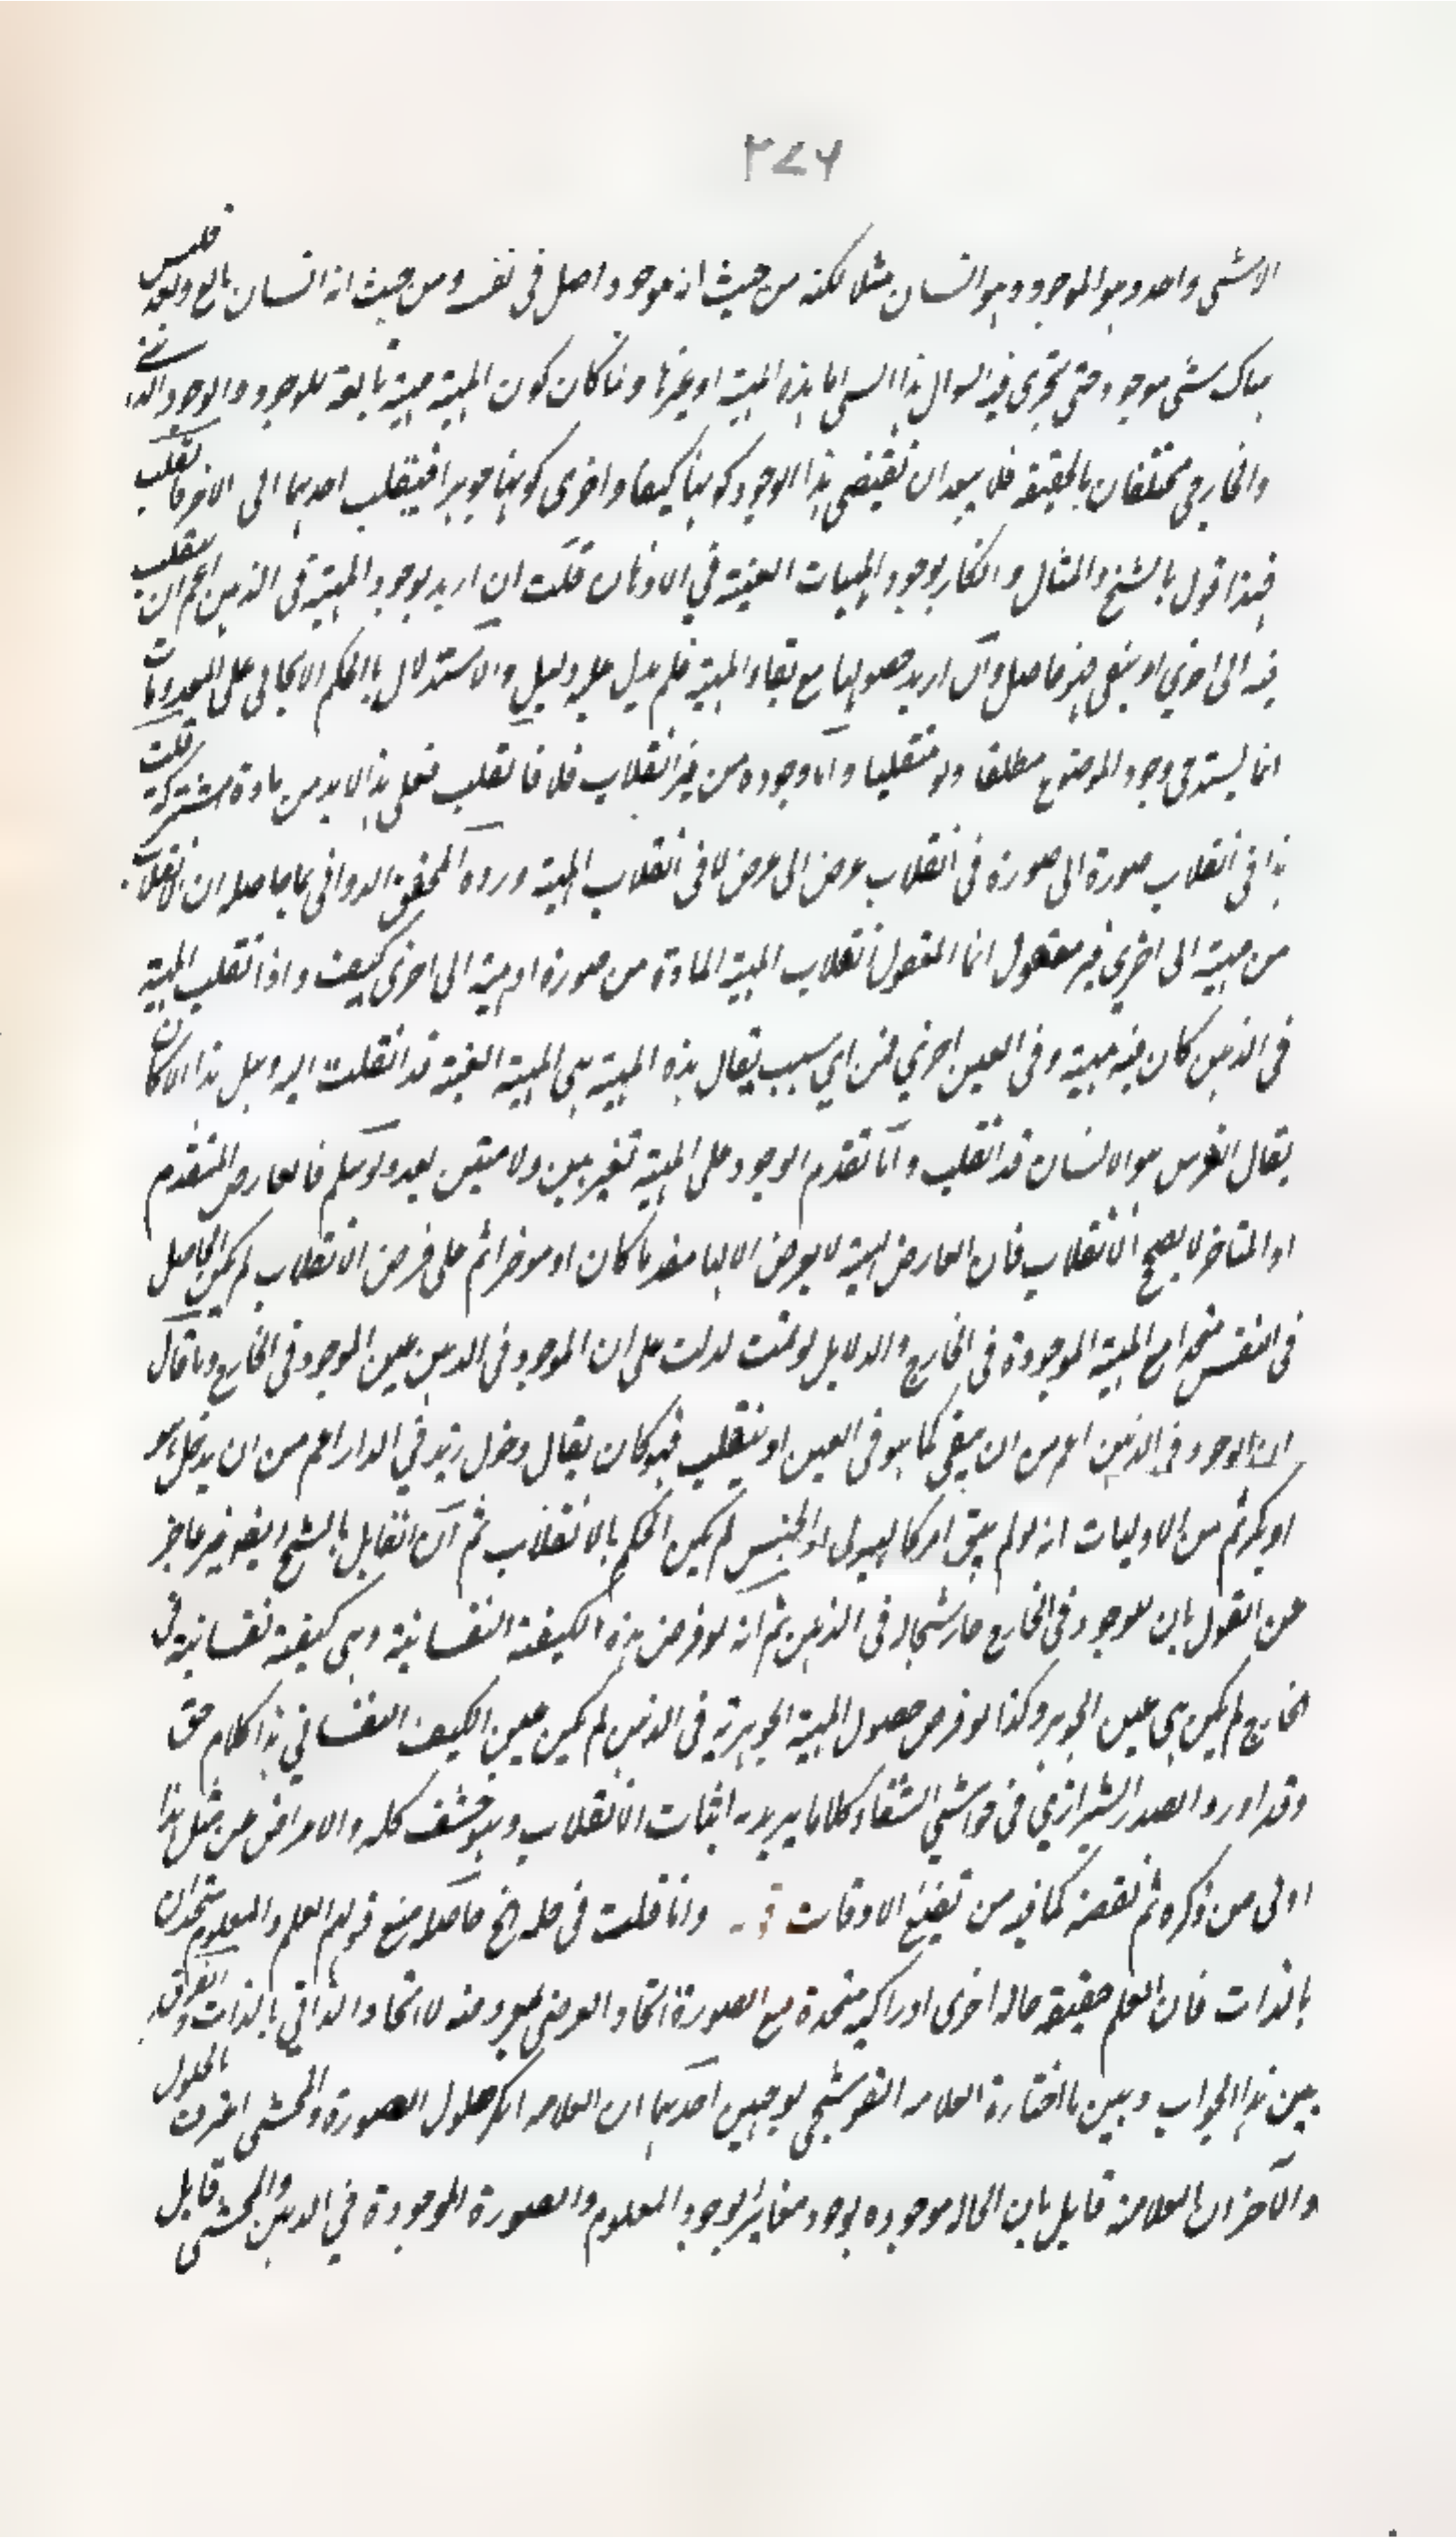 ٣٧٦
الا شئ واحد وهو الموجود وهو انسان مثلا لكنه من حيث انه موجود اصل فى نفسه ومن حيث انه انسان تابع وبعد فليس
هناك شئ موجود حتى يجرى فيه السوال هذا الشى اما بذه المهية او غيرها ولما كان كون المهية مهية تابعة للوجود والوجود الذهنى
والخارجى مختلفان بالحقيقة فلا يبعد ان يقتضى هذا الوجود كونها كيفا واخرى كونها جوهرا فينقلب احدهما الى الاخر فان قلت
فهذا قول بالشبح والمثال وانكار بوجود المهيات العينية في الاذهان قلت ان اريد بوجود المهية فى الذهن اعم ان ينقلب
فيه الى اخرى او يبقى فغير حاصل وان اريد حصولها مع بقاء المهية فلم يدل عليه دليل والاستدلال بالحكم الايجابى على المعدومات
انما يستدعى وجود الموضوع مطلقا ولو منقلبا واما وجوده من غير انقلاب فلا فان قلت فعلى هذا لابد من مادة مشتركة قلت
هذا فى انقلاب صورة الى صورة فى انقلاب عرض الى عرض لا فى انقلاب المهية ورده المحقق الدوانى بما حاصله ان الانقلاب
من مهية الى اخرى غير معقول انما المعقول انقلاب المهية المادة من صورة او مهية الى اخرى كيف واذا انقلب المهية
فى الذهن كان فيه مهية وفى العين اخرى فمن اي سبب يقال بذه المهية هى المهية العينية قد انقلبت اليه وهل هذا الا كان
يقال الفرس هو الانسان قد انقلب واما تقدم الوجود على المهية فغير بين ولا مبين بعد ولو سلم فالعارض المتقدم
او المتاخر لا يصحح الانقلاب فان العارض لمهية لا يعرض الا لها مقدما كان او موخرا ثم على فرض الانقلاب لم يكن الحاصل
فى النفس متحدا مع المهية الموجودة فى الخارج والدلايل لو تمت لدلت على ان الموجود فى الذهن عين الموجود فى الخارج وما قال
ان الوجود فى الذهن اعم من ان يبقى كما هو فى العين او ينقلب فهو كان يقال دخل زيد في الدار اعم من ان يدخل هو
او بكر ثم من الاوليات انه لو لم يبق امر كالهيولى او الجنس لم يكن الحكم بالانقلاب ثم ان القايل بالشبح ايضا غير عاجز
عن القول بان الموجود فى الخارج صار شبحا له فى الذهن ثم انه لو فرض بذه الكيفية النفسانية وهى كيفية نفسانية فى
الخارج لم يكن هى عين الجوهر وكذا لو فرض حصول المهية الجوهرية فى الذهن لم يكن عين الكيف النفسانى هذا كلام حق
وقد اورد الصدر الشيرازي فى حواشى الشفاء كلاما يريد به اثبات الانقلاب وهو خشف كله والاعراض عن مثل هذا
اولى من ذكره ثم نقضه لما فيه من تضييع الاوقات قوله وانا قلت فى حله الخ حاصله منع قولهم العلم والمعلوم متحدان
بالذات فان العلم حقيقة حالة اخرى ادراكية متحدة مع الصورة اتحاد العرضى بمعروضه لا اتحاد الذاتي بالذات والفرق
بين هذا الجواب وبين ما اختاره العلامه القوشجى بوجهين احدهما ان العلامه انكر حلول الصورة والمحشى اعترف بالحلول
والاخر ان العلامة قايل بان الحاله موجوده بوجود مغاير لوجود المعلوم والصورة الموجودة في الذهن والمحشى قايل